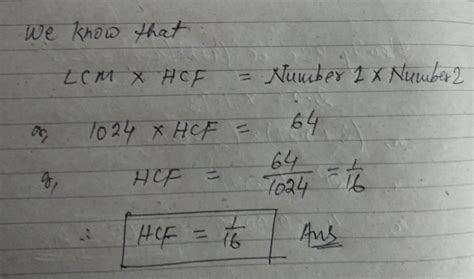 We know that
LCM × HCF = Number 1 × Number 2
or, 1024 × HCF = 64
or, HCF = 64/1024 = 1/16
∴ HCF = 1/16 Ans